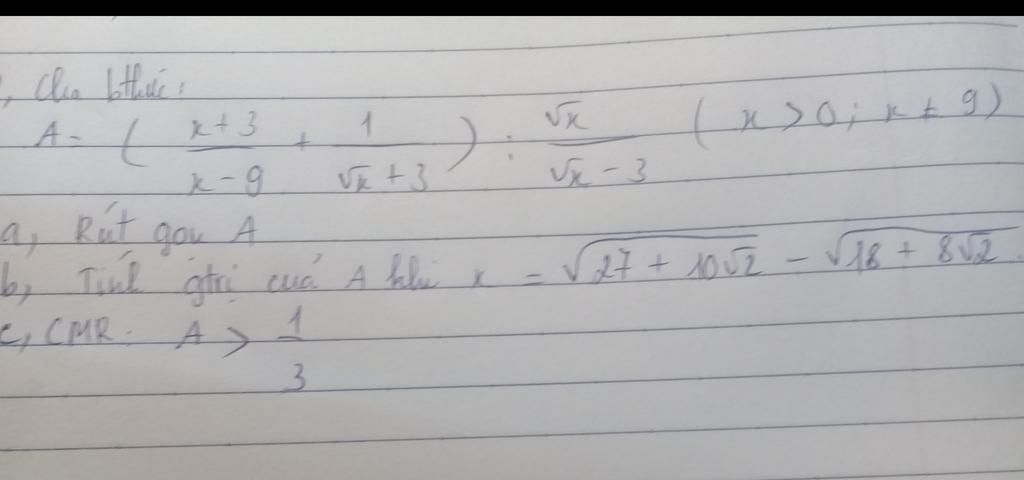 , Cho bthức:
A = ( \frac{x+3}{x-9} + \frac{1}{\sqrt{x}+3} ) : \frac{\sqrt{x}}{\sqrt{x}-3} ( x > 0 ; x ≠ 9 )
a, Rút gọn A
b, Tính gtrị của A khi x = \sqrt{27 + 10\sqrt{2}} - \sqrt{18 + 8\sqrt{2}}
c, CMR: A > \frac{1}{3}